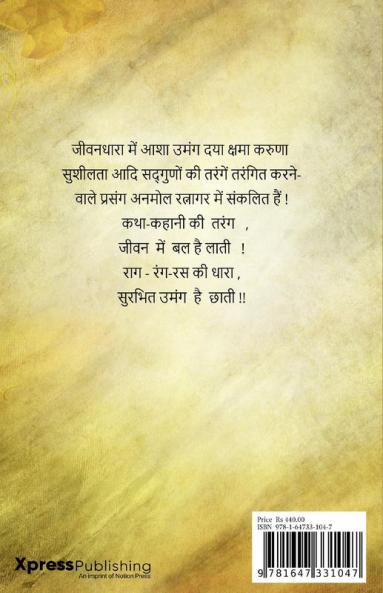 जीवनधारा में आशा उमंग दया क्षमा करुणा
सुशीलता आदि सद्‌गुणों की तरंगें तरंगित करने-
वाले प्रसंग अनमोल रत्नागर में संकलित हैं !
कथा-कहानी की तरंग ,
जीवन में बल है लाती !
राग - रंग-रस की धारा ,
सुरभित उमंग है छाती !!
Price Rs 440.00
ISBN 978-1-64733-104-7
9 781647 331047
XpressPublishing
An imprint of Notion Press